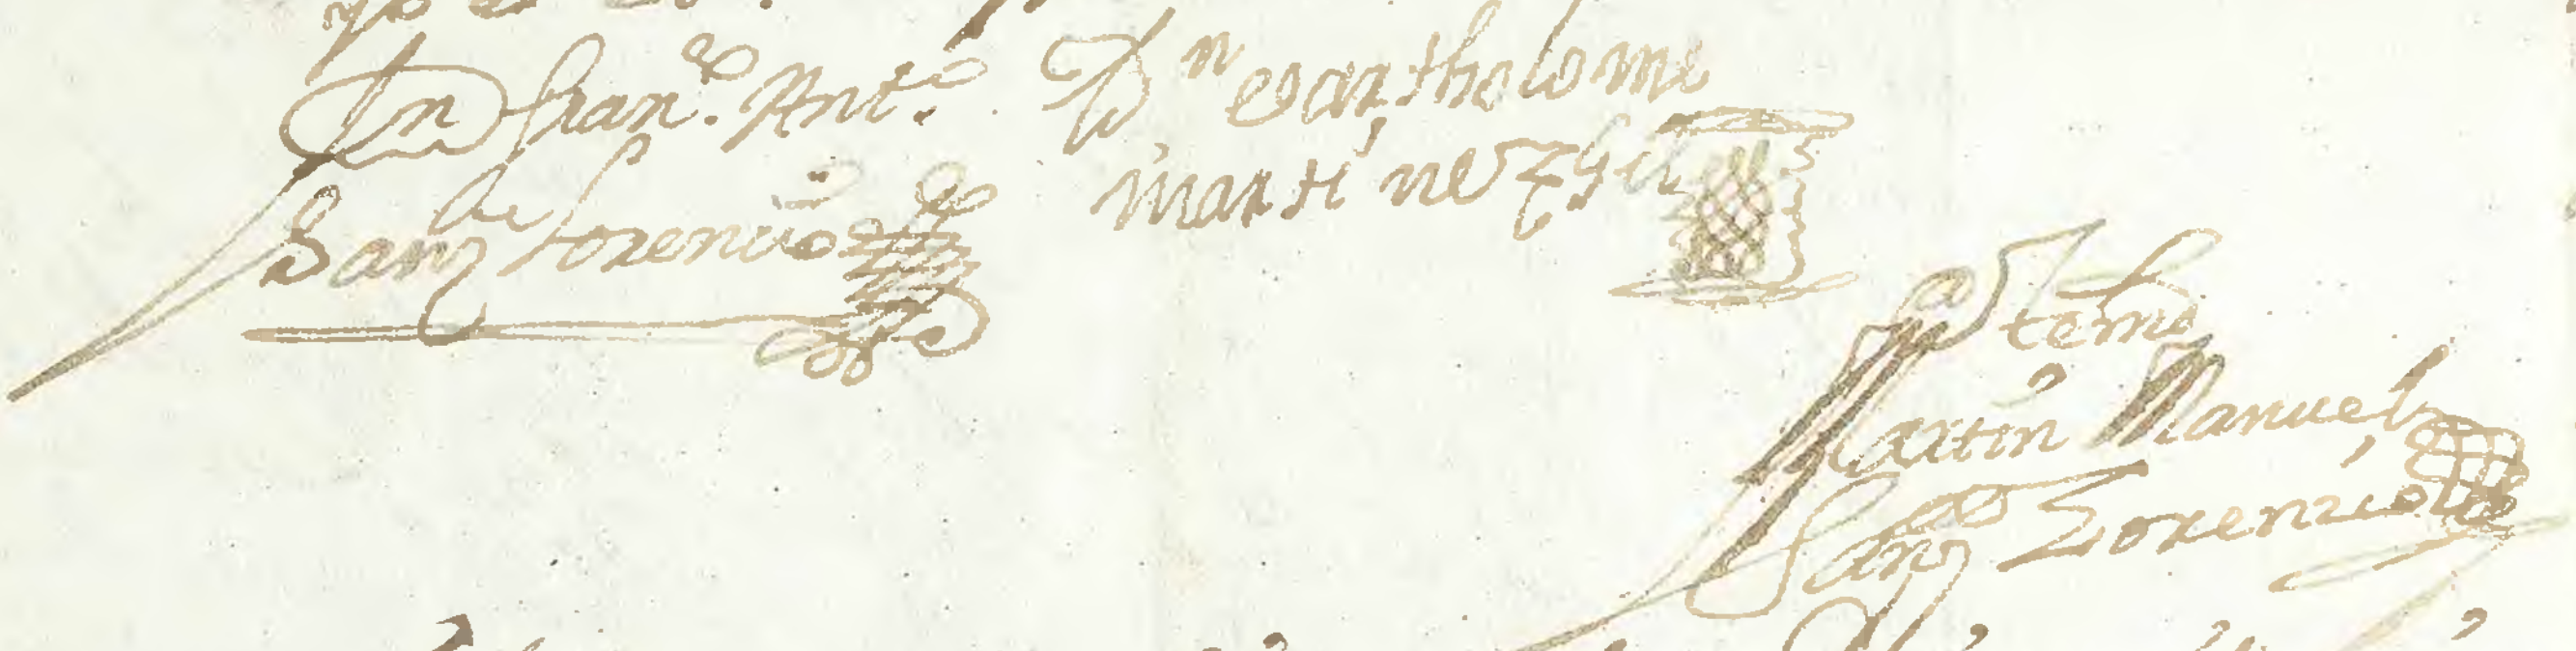 Dn Franco. Anto.
de
Sanz Lorencio
Dn Bartholome
martinez gil
Ante mi
Martin Manuel
Sanz Lorenzio